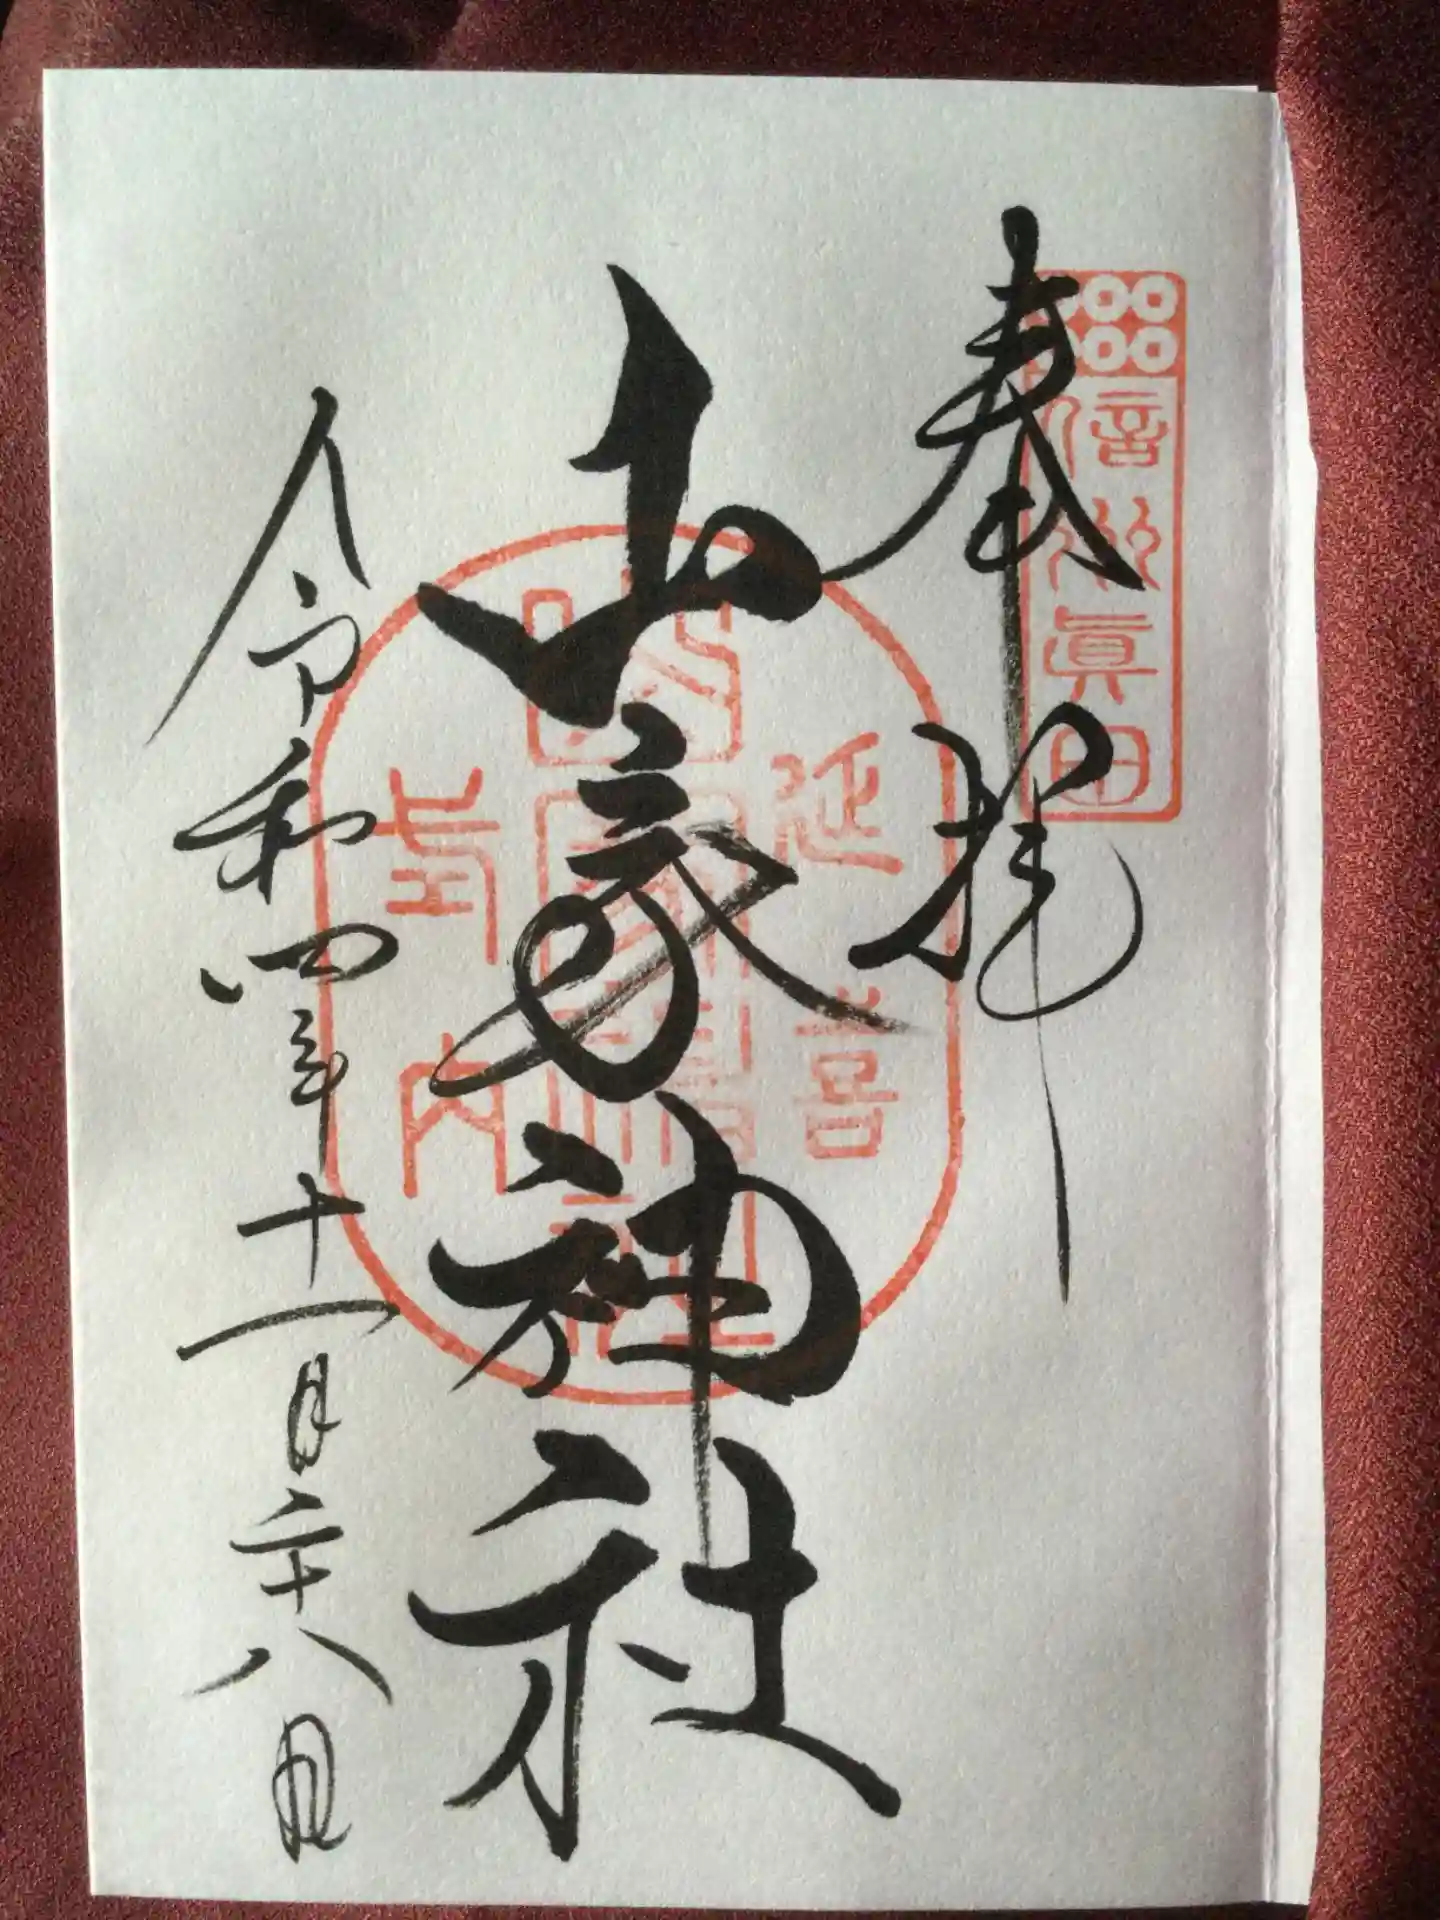 奉拝
信州眞田
山家神社
延喜
式内
山家神社
令和四年十一月二十八日